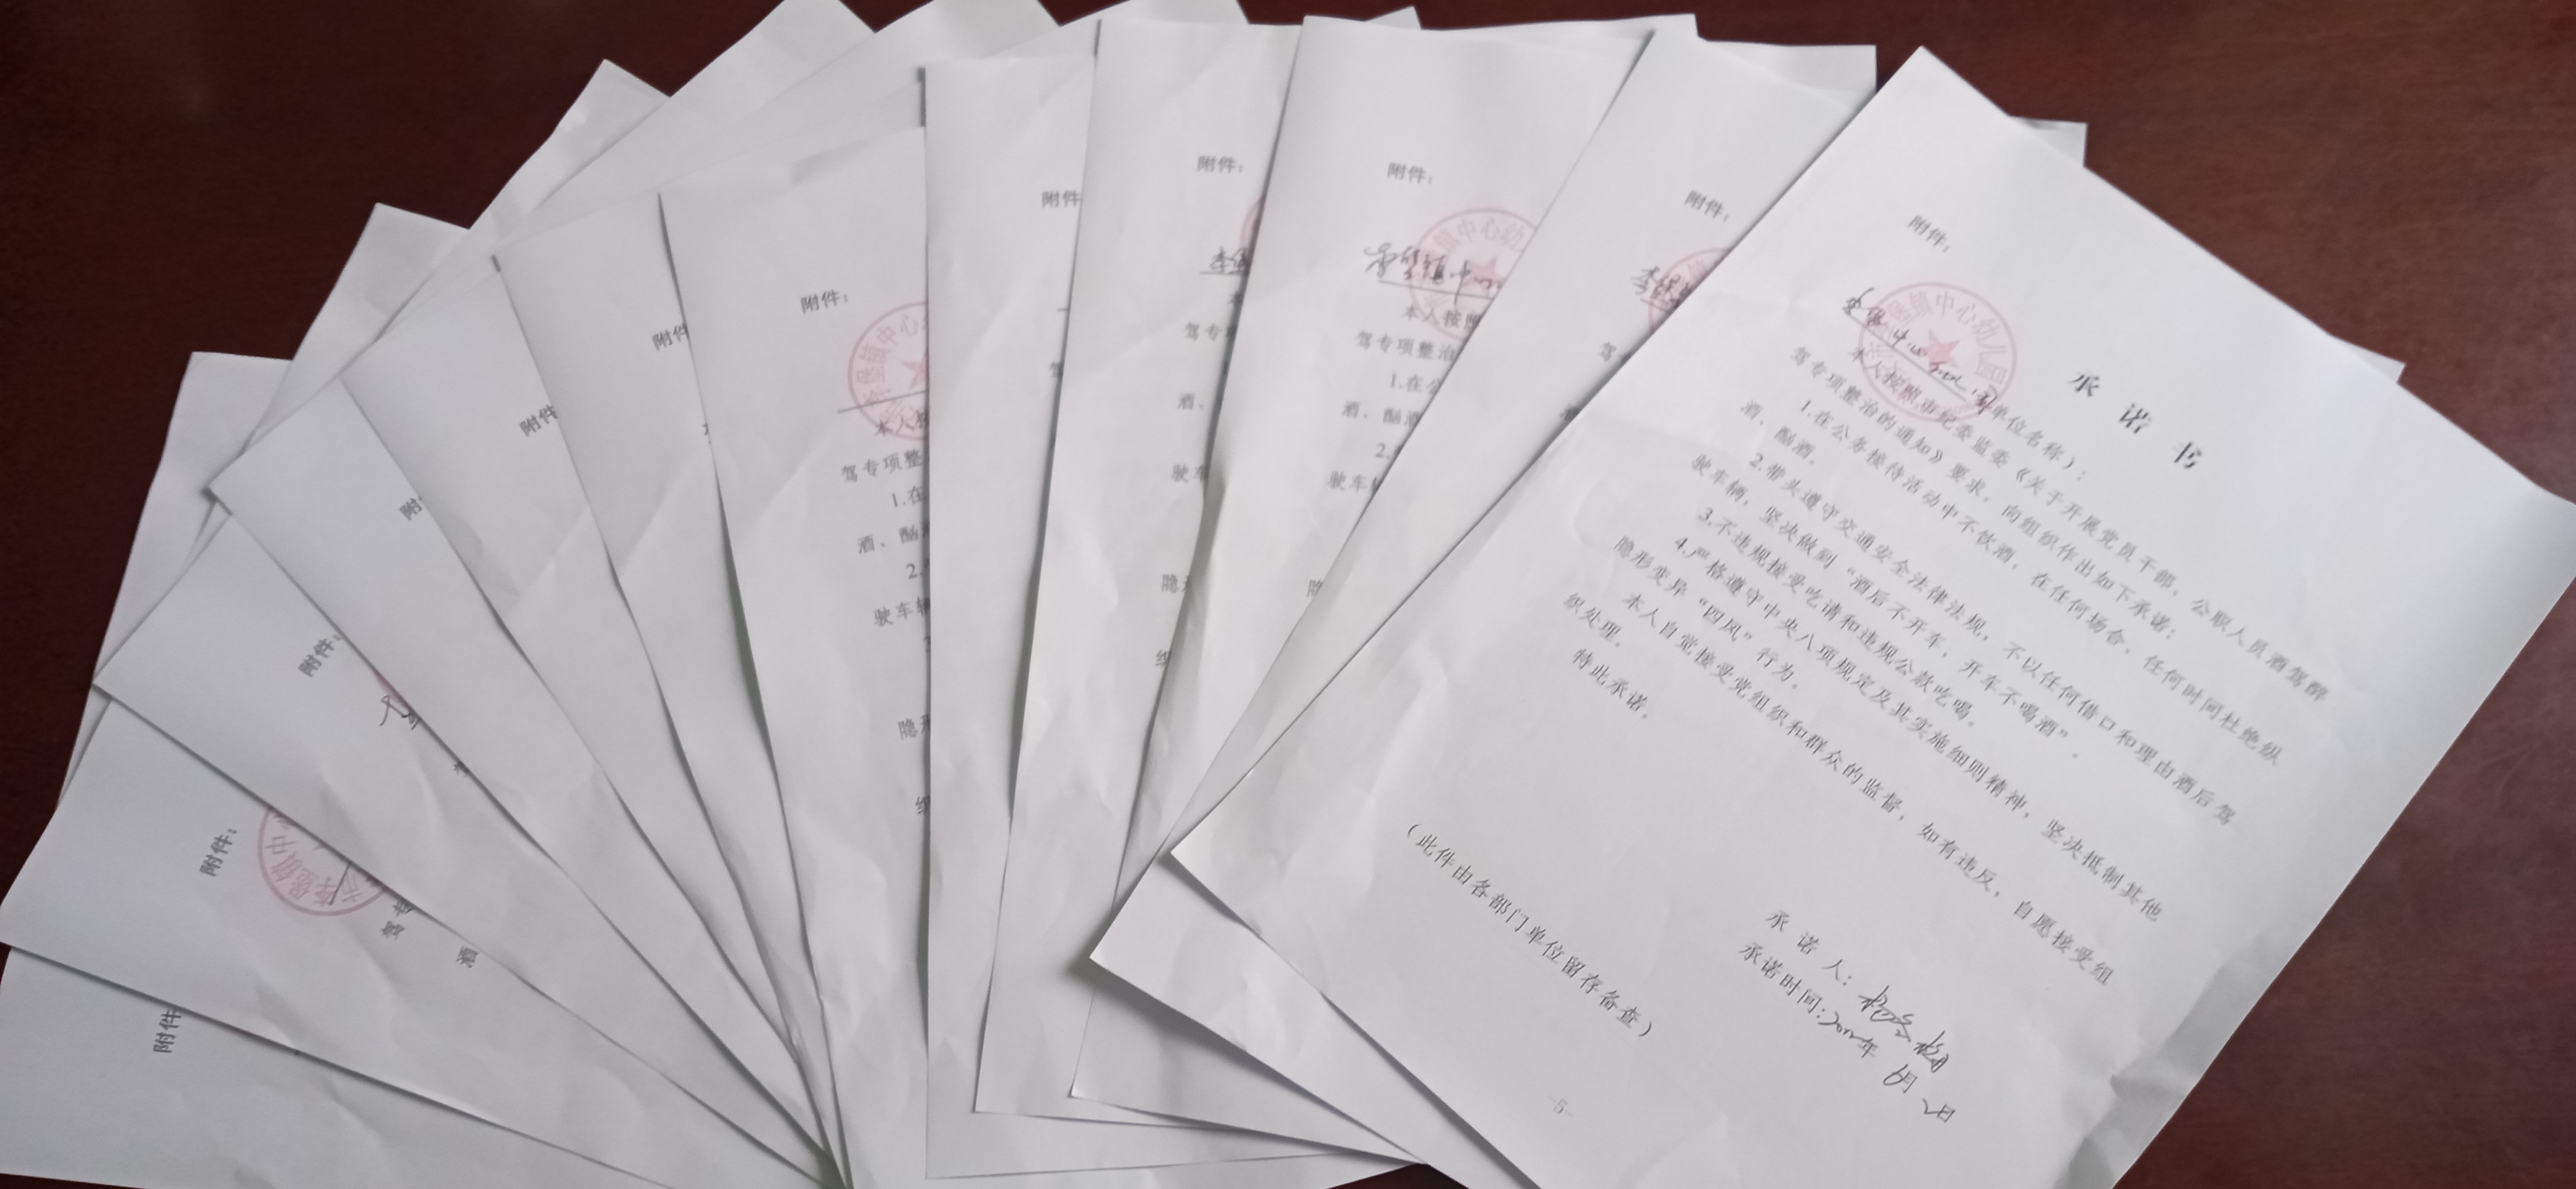 附件：
承 诺 书
中心幼儿园（单位名称）：
本人按照市纪委监委《关于开展党员干部、公职人员酒驾醉
驾专项整治的通知》要求，向组织作出如下承诺：
1.在公务接待活动中不饮酒，在任何场合、任何时间杜绝纵
酒、酗酒。
2.带头遵守交通安全法律法规，不以任何借口和理由酒后驾
驶车辆，坚决做到“酒后不开车，开车不喝酒”。
3.不违规接受吃请和违规公款吃喝。
4.严格遵守中央八项规定及其实施细则精神，坚决抵制其他
隐形变异“四风”行为。
本人自觉接受党组织和群众的监督，如有违反，自愿接受组
织处理。
特此承诺。
承 诺 人：
承诺时间：2022年 6月 2日
（此件由各部门单位留存备查）
-5-
堡镇中心幼儿园
附件：
附件：
镇中心幼
本人按照
驾专项整治
1.在公
酒、酗酒
2.
驶车辆
附件：
驾专项
酒、
驶车
隐形
附件
附件：
堡镇中心
本人按
驾专项整
1.在
酒、酗酒
2.
驶车辆
隐形
附件
附件
附件
附件：
附件：
镇中心
驾
酒
附件